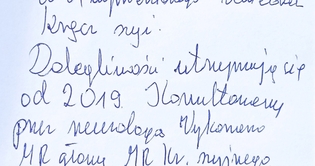 Kręcz szyi.
Dolegliwości utrzymują się
od 2019. Konsultowany
przez neurologa Wykonano
MR głowy MR kr. szyjnego